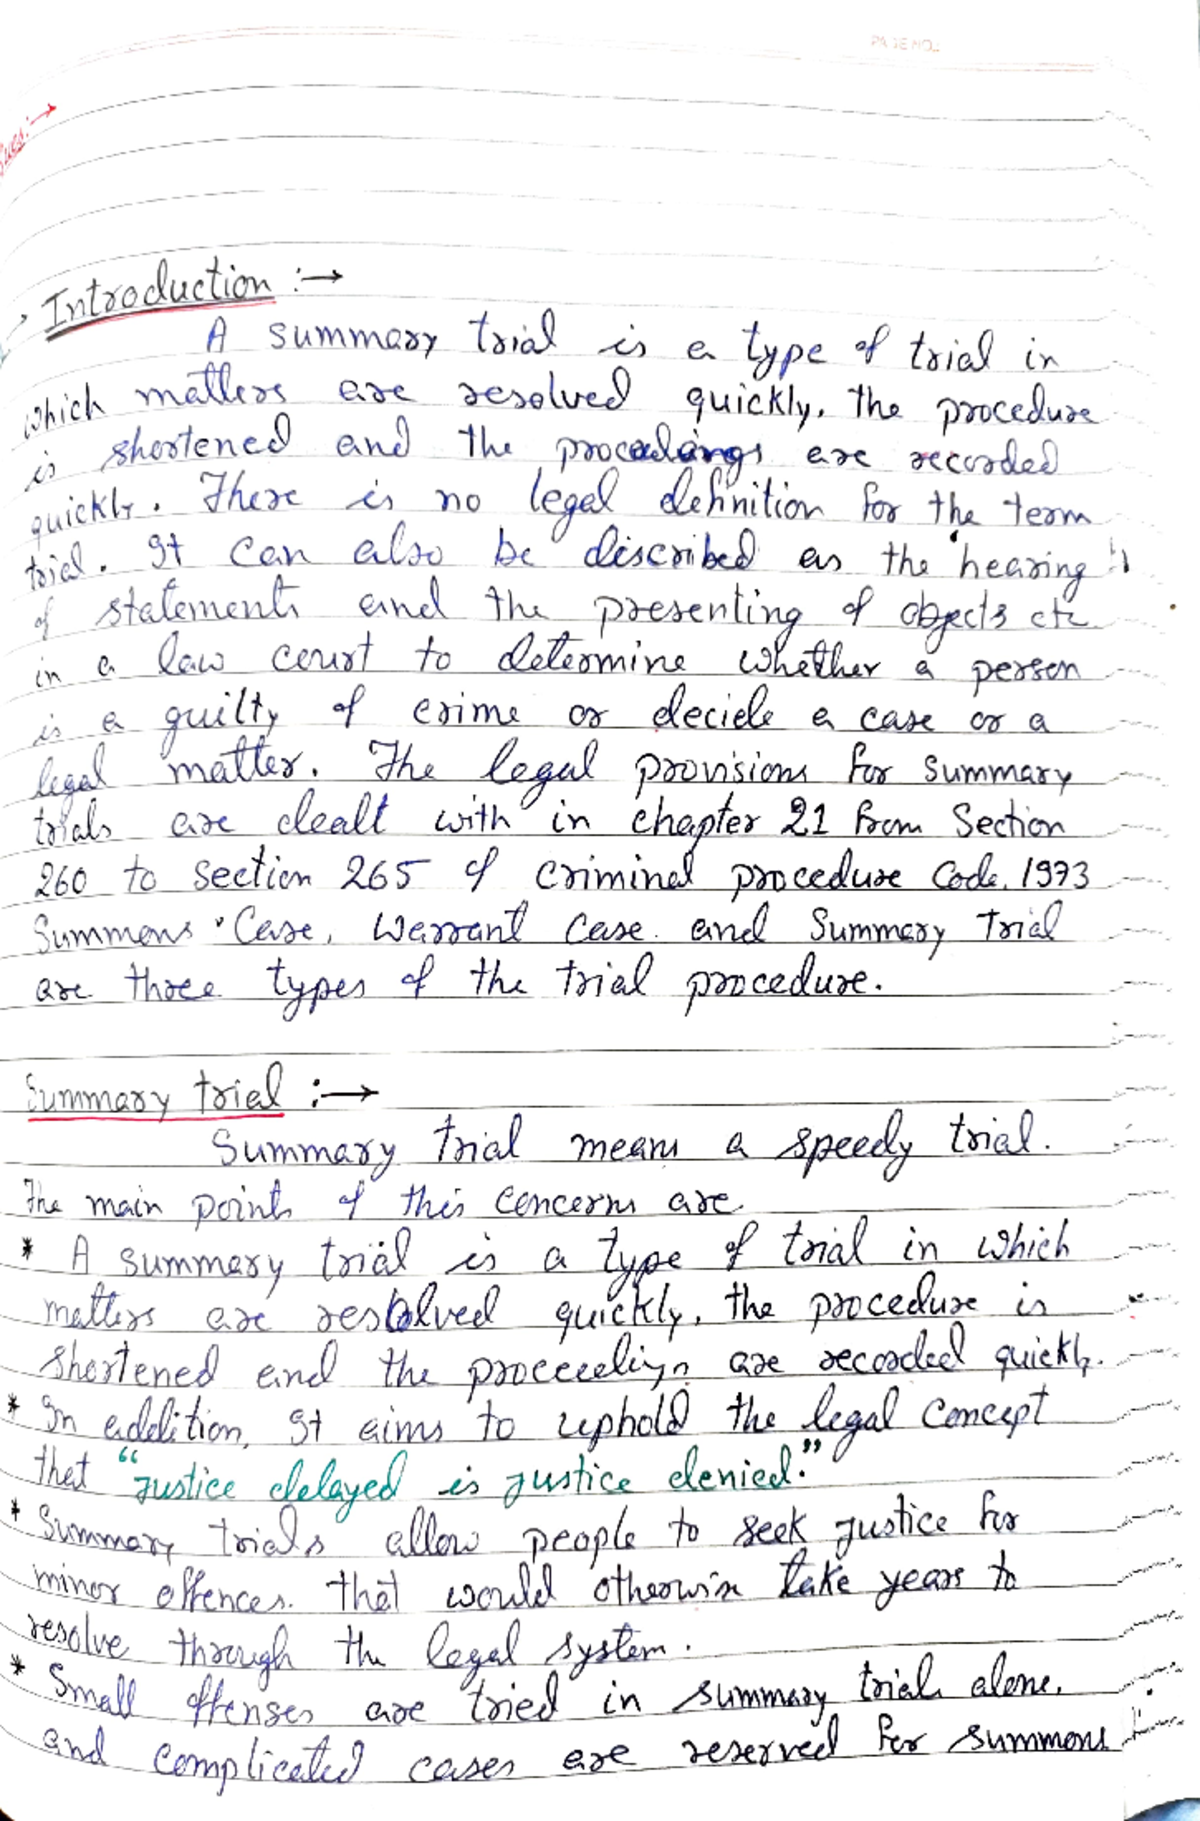 PAGE NO.:
Introduction :→
A summary trial is a type of trial in
which matters are resolved quickly, the procedure
is shortened and the procedings are recorded
quickly. There is no legal definition for the term
trial. It can also be described as the 'hearing
of statements and the presenting of objects etc
in a law court to determine whether a person
is a guilty of crime or decide a case or a
legal matter. The legal provisions for summary
trials are dealt with in chapter 21 from Section
260 to section 265 of criminal procedure Code, 1973
Summons Case, Warrant Case. and Summary Trial
are three types of the trial procedure.
Summary trial :→
Summary trial means a speedy trial.
The main points of this concerns are.
* A summary trial is a type of trial in which
matters are resolved quickly, the procedure is
shortened and the proceedings are recorded quickly.
* In addition, It aims to uphold the legal concept
that "Justice delayed is justice denied."
* Summary trials allow people to seek justice for
minor offences. that would otherwise take years to
resolve through the legal system.
* Small offenses are tried in summary trials alone,
and complicated cases are reserved for summons